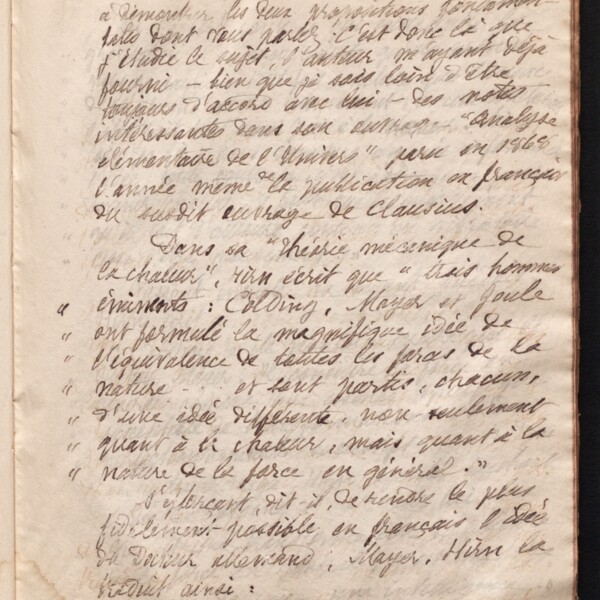 à démontrer, les deux propositions fondamen-
tales dont vous parlez: c'est donc là que
j'étudie le sujet, l'auteur m'ayant déjà
fourni – bien que je sois loin d'être
toujours d'accord avec lui – des notes
intéressantes dans son ouvrage "Analyse
élémentaire de l'Univers" paru en 1868
l'année même de la publication en français
du susdit ouvrage de Clausius.
Dans sa "Théorie mécanique de
la chaleur", Hirn écrit que "trois hommes
" éminents: Colding, Mayer et Joule
" ont formulé la magnifique idée de
" l'équivalence de toutes les forces de la
" nature - - - et sont partis, chacun,
" d'une idée différente, non seulement
" quant à la chaleur, mais quant à la
" nature de la force en général."
S'éforçant, dit-il, de rendre le plus
fidèlement possible en français l'idée
du Docteur allemand, Mayer, Hirn la
traduit ainsi: